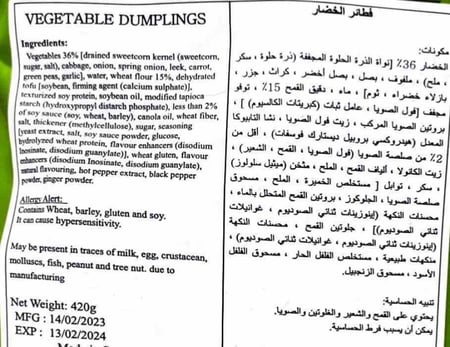 VEGETABLE DUMPLINGS
Ingredients:
Vegetables 36% [drained sweetcorn kernel (sweetcorn,
sugar, salt), cabbage, onion, spring onion, leek, carrot,
green peas, garlic], water, wheat flour 15%, dehydrated
tofu [soybean, firming agent (calcium sulphate)],
texturized soy protein, soybean oil, modified tapioca
starch (hydroxypropyl distarch phosphate), less than 2%
of soy sauce (soy, wheat, barley), canola oil, wheat fiber,
salt, thickener (methylcellulose), sugar, seasoning
[yeast extract, salt, soy sauce powder, glucose,
hydrolyzed wheat protein, flavour enhancers (disodium
Inosinate, disodium guanylate)], wheat gluten, flavour
enhancers (disodium Inosinate, disodium guanylate),
natural flavouring, hot pepper extract, black pepper
powder, ginger powder.
Allergy Alert:
Contains Wheat, barley, gluten and soy.
It can cause hypersensitivity.
May be present in traces of milk, egg, crustacean,
molluscs, fish, peanut and tree nut. due to
manufacturing
Net Weight: 420g
MFG : 14/02/2023
EXP : 13/02/2024
فطائر الخضار
مكونات:
الخضار 36٪ [نواة الذرة الحلوة المجففة (ذرة حلوة ، سكر
، ملح) ، ملفوف ، بصل ، بصل أخضر ، كراث ، جزر ،
بازلاء خضراء ، ثوم] ، ماء ، دقيق القمح 15٪ ، توفو
مجفف [فول الصويا ، عامل ثبات (كبريتات الكالسيوم)] ،
بروتين الصويا المركب ، زيت فول الصويا ، نشا التابيوكا
المعدل (هيدروكسي بروبيل ديستارك فوسفات) ، أقل من
2٪ من صلصة الصويا (فول الصويا ، القمح ، الشعير) ،
زيت الكانولا ، ألياف القمح ، الملح ، مثخن (ميثيل سلولوز)
، سكر ، توابل [مستخلص الخميرة ، الملح ، مسحوق
صلصة الصويا ، الجلوكوز ، بروتين القمح المتحلل بالماء ،
محسنات النكهة (إينوزينات ثنائي الصوديوم ، غوانيلات
ثنائي الصوديوم)] ، جلوتين القمح ، محسنات النكهة
(إينوزينات ثنائي الصوديوم ، غوانيلات ثنائي الصوديوم) ،
منكهات طبيعية ، مستخلص الفلفل الحار ، مسحوق الفلفل
الأسود ، مسحوق الزنجبيل.
تنبيه الحساسية:
يحتوي على القمح والشعير والغلوتين والصويا.
يمكن أن يسبب فرط الحساسية.